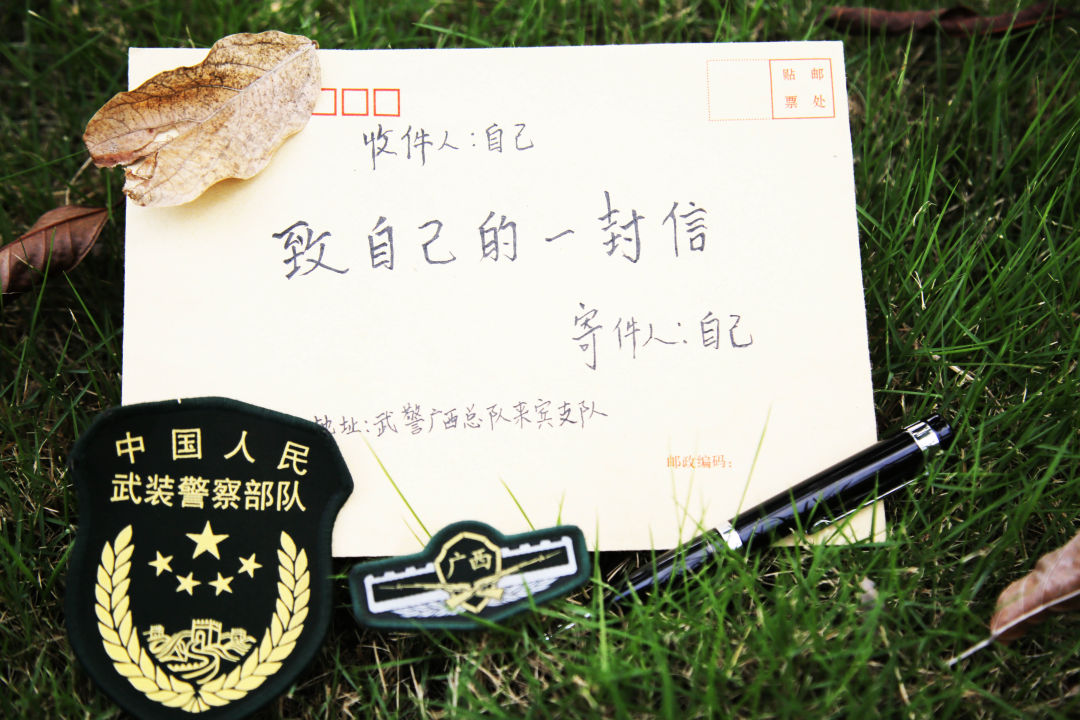 贴 邮
票 处
收件人:自己
致自己的一封信
寄件人:自己
地址:武警广西总队来宾支队
邮政编码:
中国人民
武装警察部队
广西